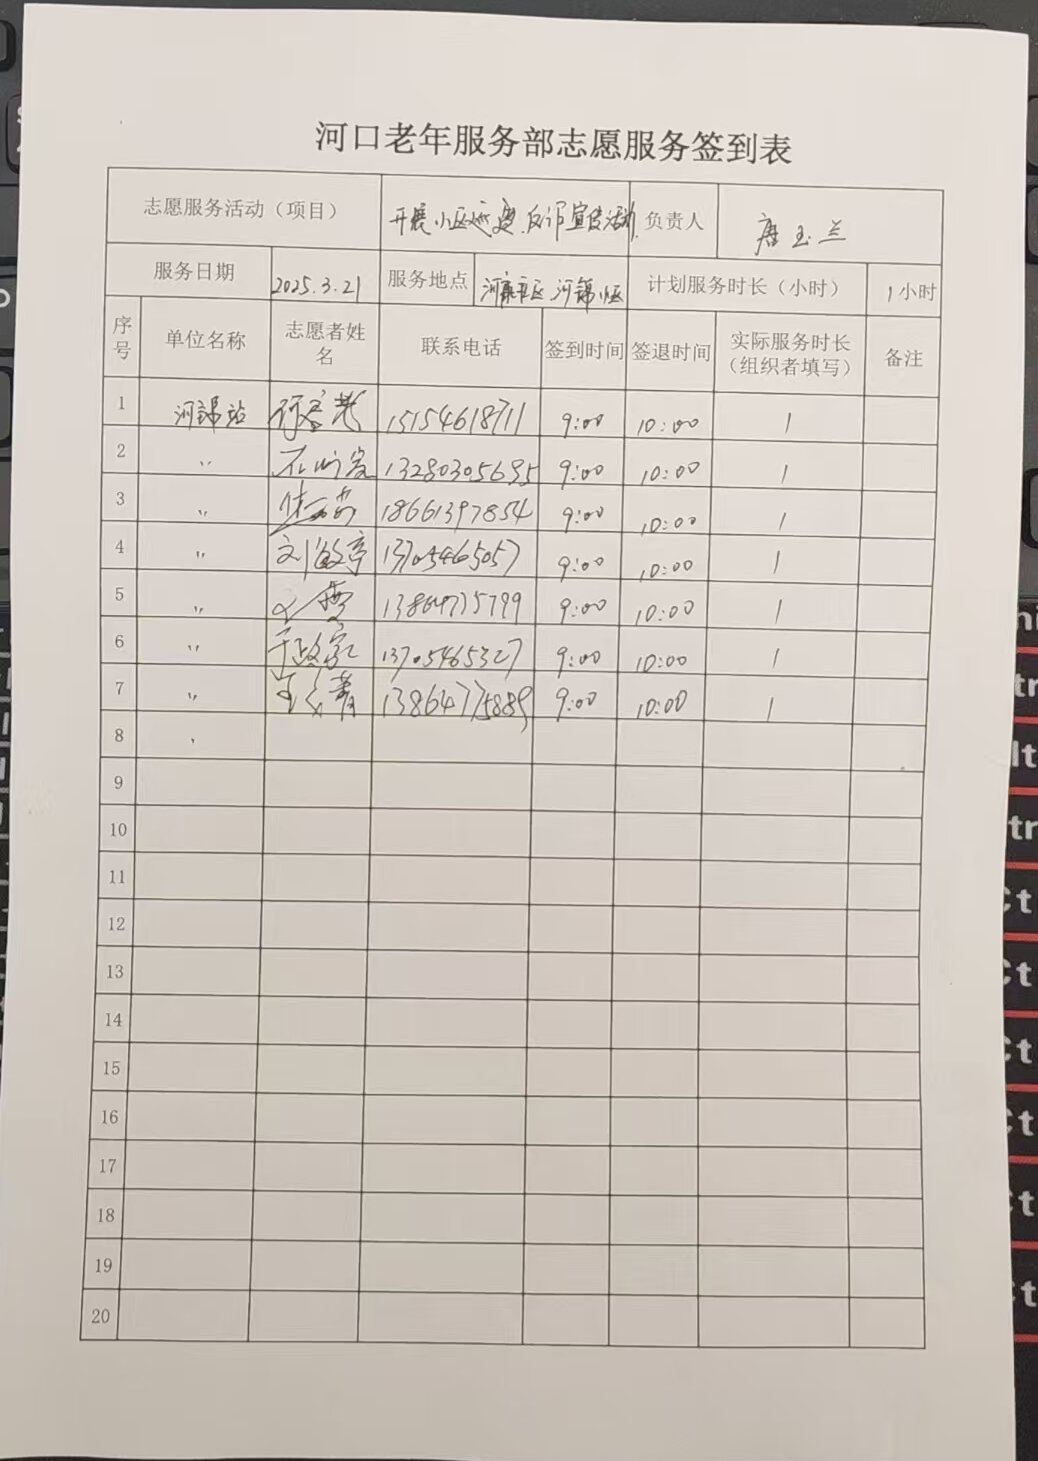 河口老年服务部志愿服务签到表
志愿服务活动（项目） 开展小区巡逻、反诈宣传活动. 负责人 唐玉兰
服务日期 2025.3.21 服务地点 河锦小区 计划服务时长（小时） 1小时
序号 单位名称 志愿者姓名 联系电话 签到时间 签退时间 实际服务时长（组织者填写） 备注
1 河锦站 15154618711 9:00 10:00 1
2 〃 13280305695 9:00 10:00 1
3 〃 18661397854 9:00 10:00 1
4 〃 刘敏亭 13705465057 9:00 10:00 1
5 〃 9:00 10:00 1
6 〃 13705465327 9:00 10:00 1
7 〃 13864775889 9:00 10:00 1
8
9
10
11
12
13
14
15
16
17
18
19
20